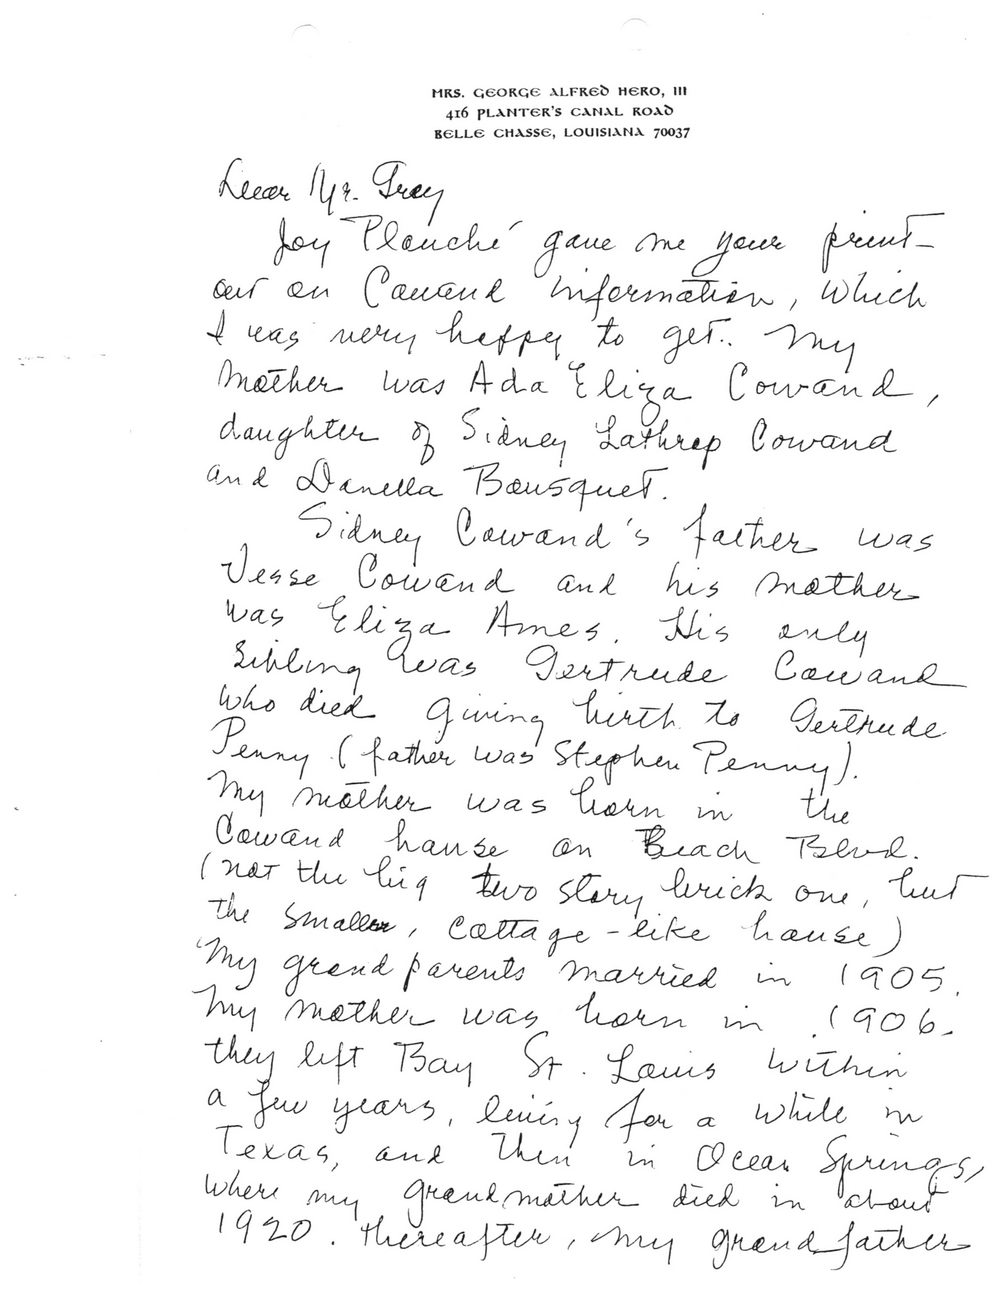 MRS. GEORGE ALFRED HERO, III
416 PLANTER'S CANAL ROAD
BELLE CHASSE, LOUISIANA 70037
Dear Mr. Grey
Joy Plauché gave me your print-
out on Cowand information, which
I was very happy to get. My
mother was Ada Eliza Cowand,
daughter of Sidney Lathrop Cowand
and Danella Bousquet.
Sidney Cowand's father was
Jesse Cowand and his mother
was Eliza Ames. His only
sibling was Gertrude Cowand
who died giving birth to Gertrude
Penny (father was Stephen Penny).
My mother was born in the
Cowand house on Beach Blvd.
(not the big two story brick one, but
the smaller, cottage-like house)
My grandparents married in 1905.
My mother was born in 1906.
they left Bay St. Louis within
a few years, living for a while in
Texas, and then in Ocean Springs,
where my grandmother died in about
1920. thereafter, my grandfather